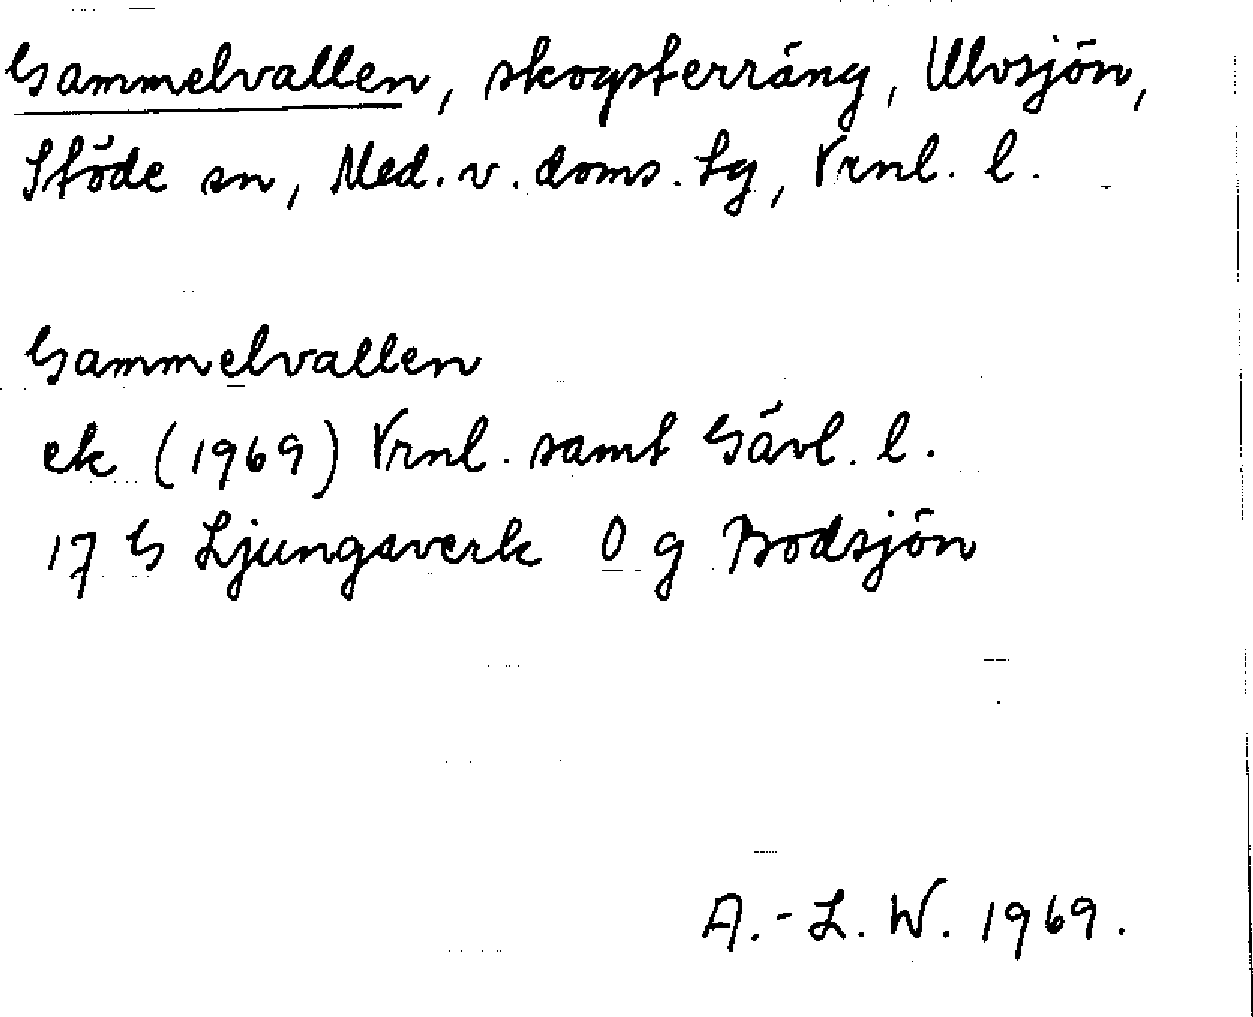 Gammelvallen, skogsterräng, Ulvsjön,
Stöde sn, Med. v. doms. tg, Vrnl. l.
Gammelvallen
ek (1969) Vrnl. samt Gävl. l.
17 G Ljungaverk 0 g Bodsjön
A.-L. W. 1969.